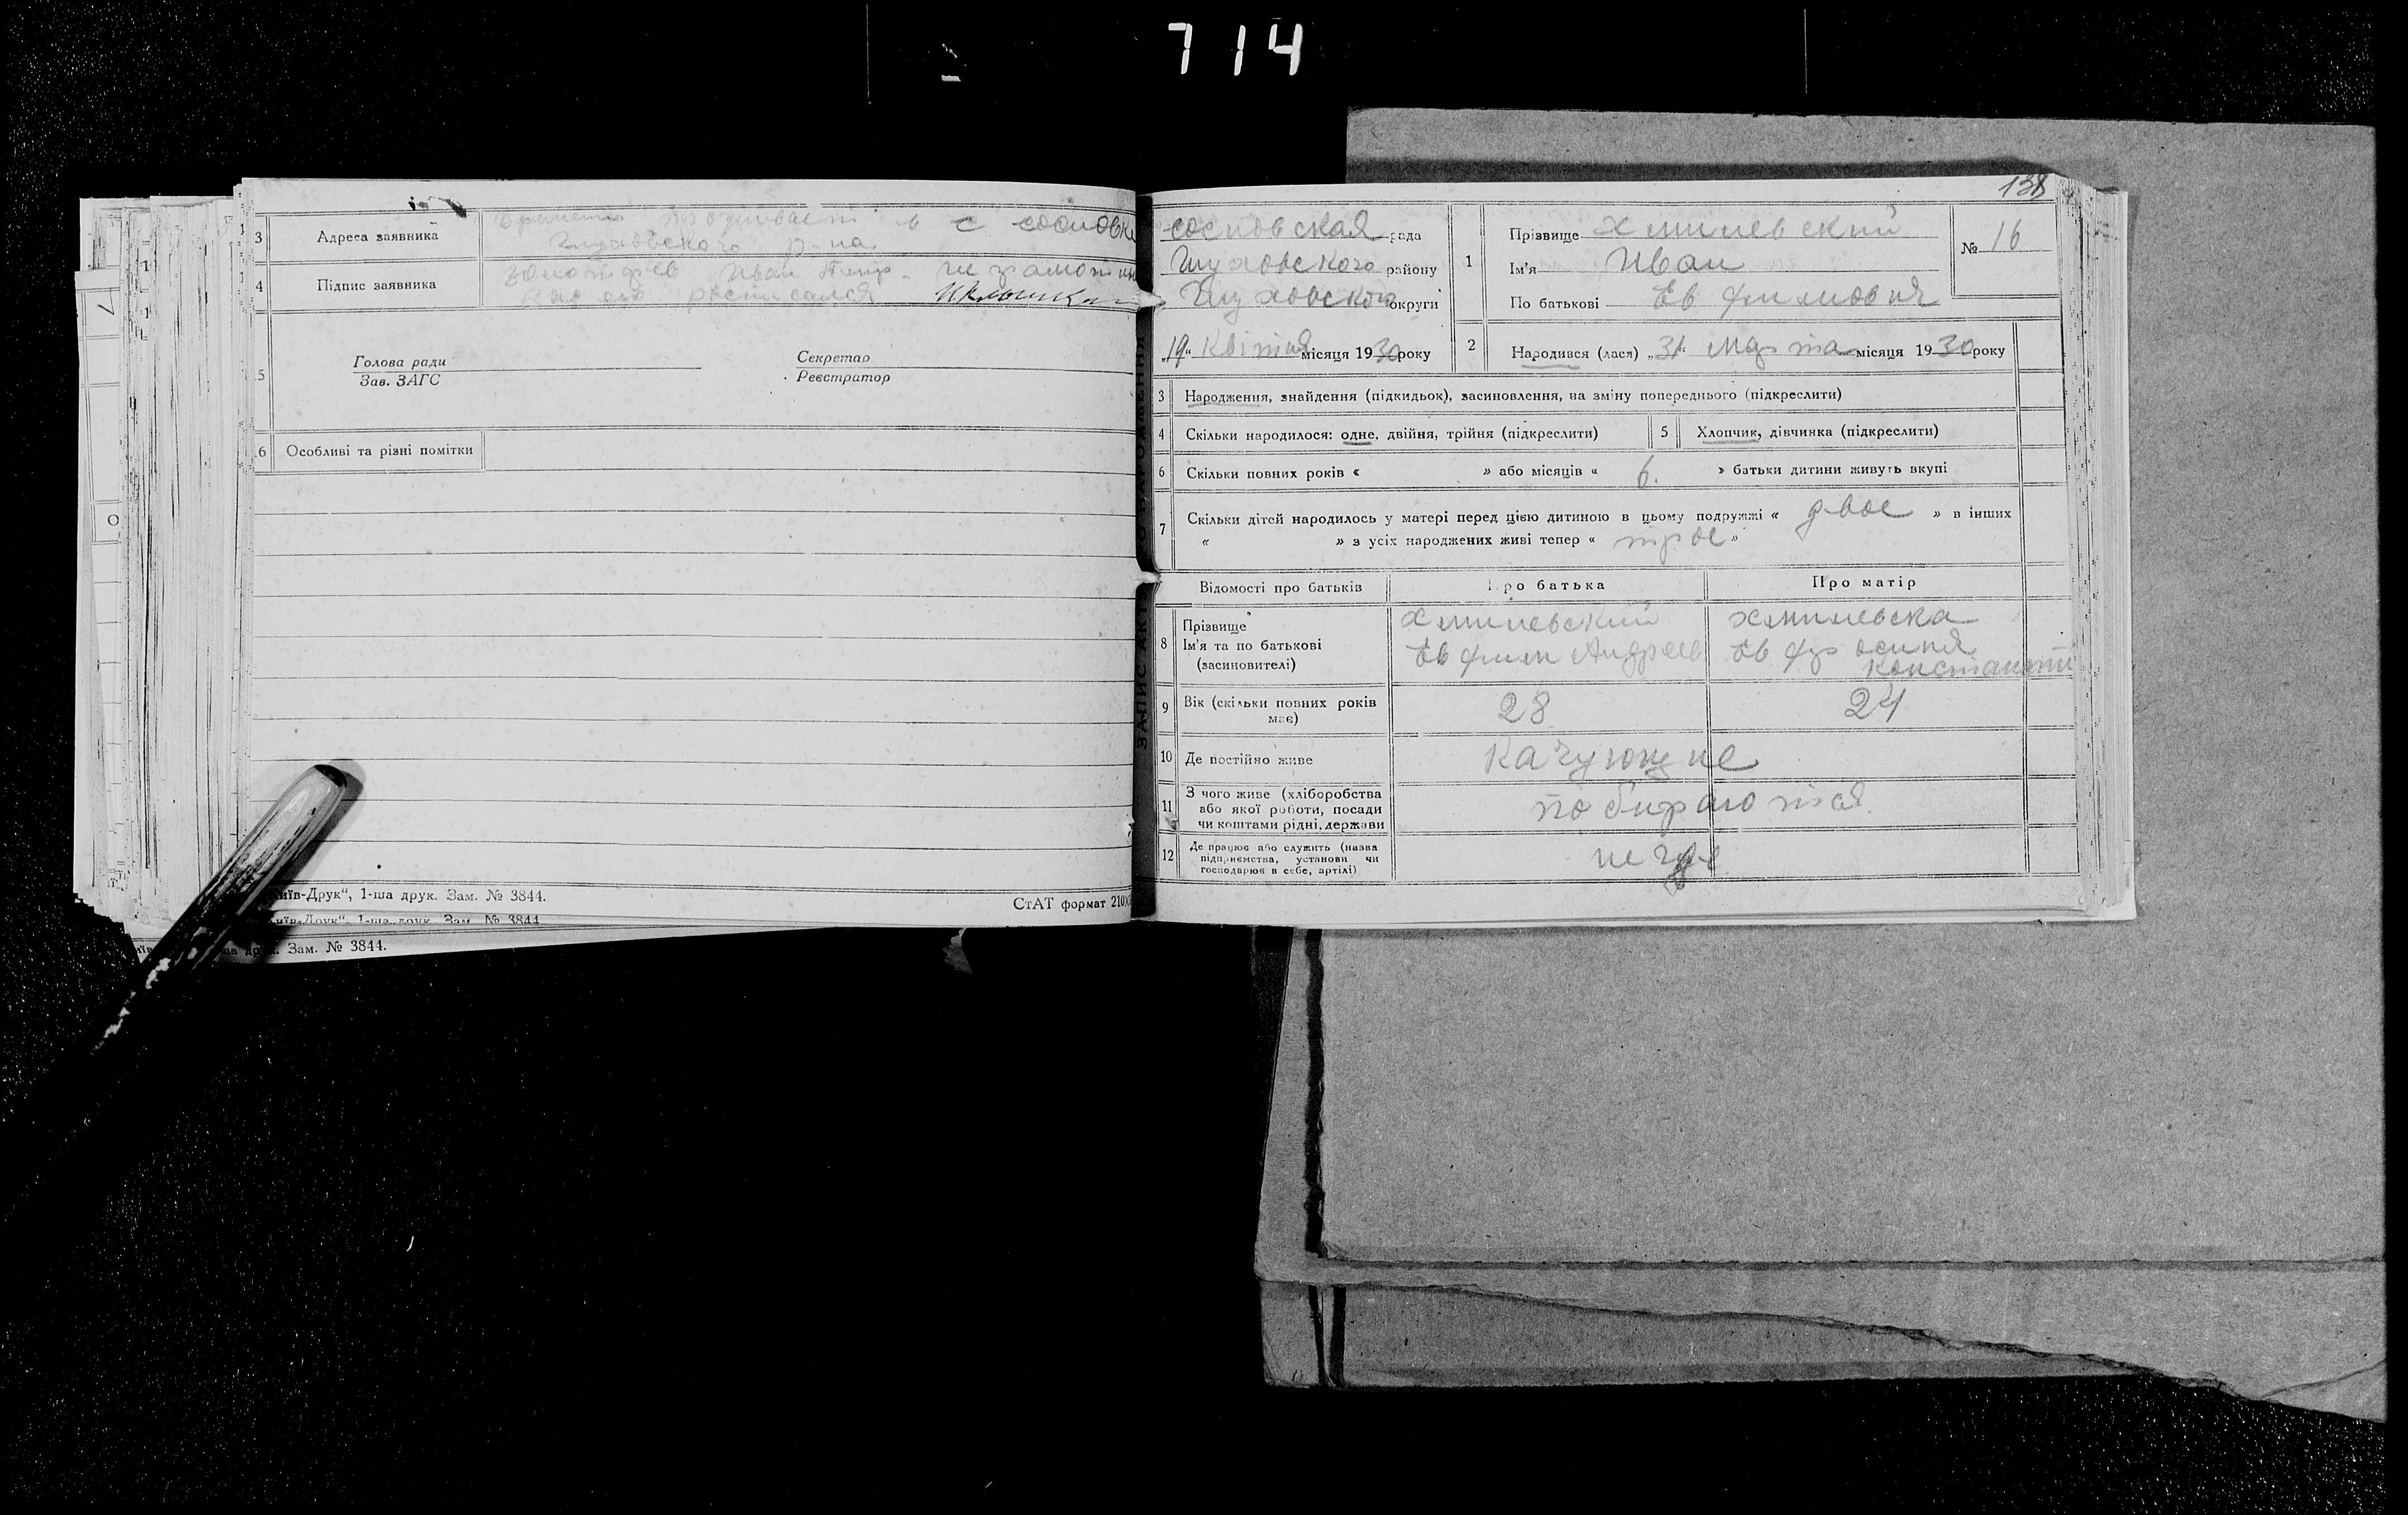 714
3 Адреса заявника
временно проживает в с сосновки
Глуховского р-на.
4 Підпис заявника
Иван Петр. не грамотн
росписался
5 Голова ради
Зав. ЗАГС
Секретар
Реєстратор
6 Особливі та різні помітки
Київ-Друк“, 1-ша друк. Зам. № 3844.
Київ-Друк“ 1-ша друк. Зам. № 3844
ша друк. Зам. № 3844.
СтАТ формат 210
ЗАПИС АКТ
НАРОДЖЕННЯ
138
сосновская рада
Глуховского району
Глуховского округи
„19“ Квітня місяця 1930 року
1 Прізвище Хмилевский
Ім'я Иван
По батькові Евфимовия
№ 16
2 Народився (лася) „31“ Марта місяця 1930 року
3 Народження, знайдення (підкидьок), засиновлення, на зміну попереднього (підкреслити)
4 Скільки народилося: одне, двійня, трійня (підкреслити) 5 Хлопчик, дівчинка (підкреслити)
6 Скільки повних років « » або місяців « 6. » батьки дитини живуть вкупі
7 Скільки дітей народилось у матері перед цією дитиною в цьому подружжі « двое » в інших
« » з усіх народжених живі тепер « трое »
Відомості про батьків Про батька Про матір
8 Прізвище
Ім'я та по батькові
(засиновителі)
Хмилевский
Евфим Андреев
хмилевска
Евфросиния
Константи
9 Вік (скільки повних років
має)
28 24
10 Де постійно живе Качующие
11 З чого живе (хліборобства
або якої роботи, посади
чи коштами рідні, держави
побираются
12 Де працює або служить (назва
підприємства, установи чи
господарює в себе, артілі)
негде